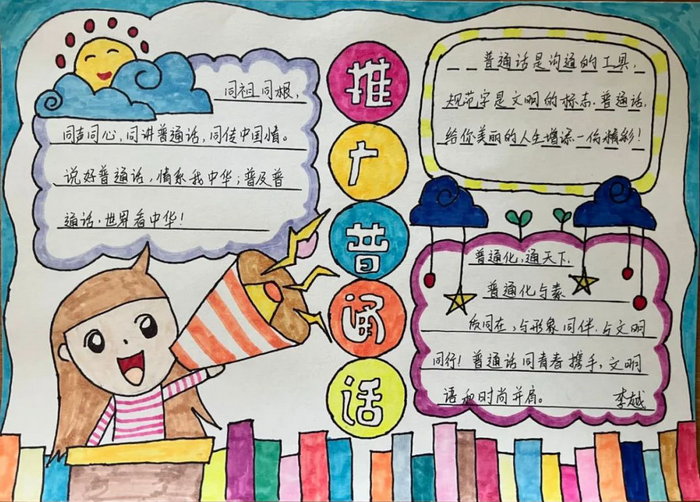 同祖同根,
同声同心,同讲普通话,同传中国情。
说好普通话,情系我中华;普及普
通话,世界看中华!
推
广
普
通
话
普通话是沟通的工具,
规范字是文明的标志.普通话,
给你美丽的人生增添一份精彩!
普通化,通天下.
普通化与素
质同在,与形象同伴.与文明
同行!普通话同青春携手,文明
语和时尚并肩。 李越